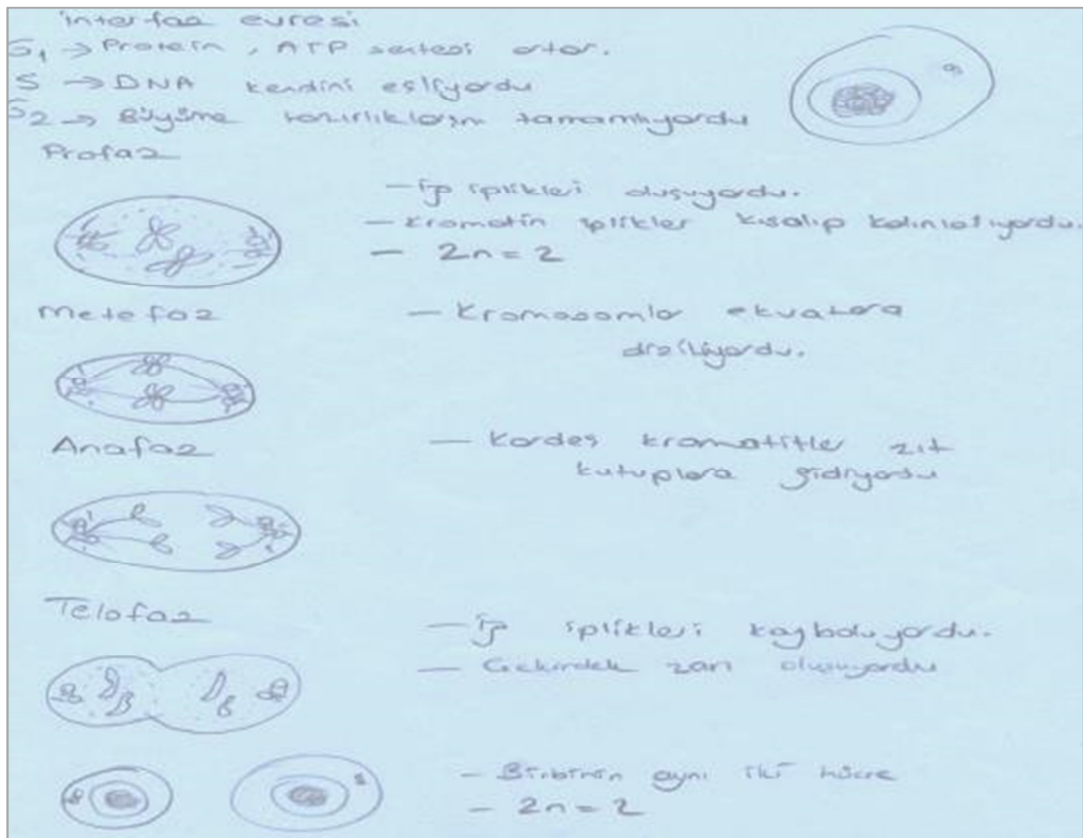 interfaz evresi
G1 → Protein, ATP sentezi artar.
S → DNA kendini eşliyordu
G2 → Büyüme hazırlıklarını tamamlıyordu
Profaz
- İğ iplikleri oluşuyordu.
- Kromatin iplikler kısalıp kalınlaşıyordu.
- 2n = 2
Metefaz
- Kromozomlar ekvatora
diziliyordu.
Anafaz
- Kardeş kromatitler zıt
kutuplara gidiyordu
Telofaz
- İğ iplikleri kayboluyordu.
- Çekirdek zarı oluşuyordu
- Birbirinin aynı iki hücre
- 2n = 2